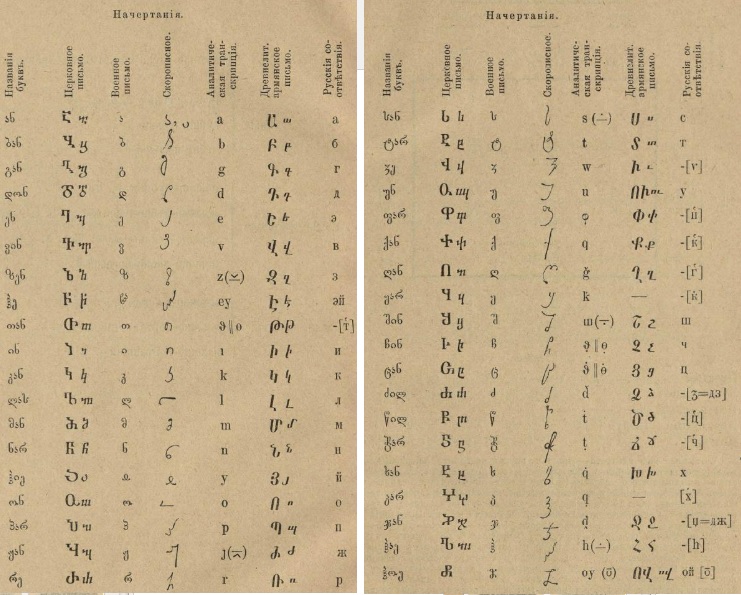 Начертанія.
Названія буквъ. Церковное письмо. Военное письмо. Скорописное. Аналитическая транскрипція. Древнелит. армянское письмо. Русскія соотвѣтствія.
ან Ⴀ ⴀ ა a Ա ա а
ბან Ⴁ ⴁ ბ b Բ բ б
გან Ⴂ ⴂ გ g Գ գ г
დონ Ⴃ ⴃ დ d Դ դ д
ენ Ⴄ ⴄ ე e Ե ե э
ვინ Ⴅ ⴅ ვ v Վ վ в
ზენ Ⴆ ⴆ ზ z Զ զ з
ჱე Ⴡ ⴡ ჱ ey Է է эй
თან Ⴇ ⴇ თ ϑ‖θ Թ թ -[т̇]
ინ Ⴈ ⴈ ი ı Ի ի и
კან Ⴉ ⴉ კ k Կ կ к
ლას Ⴊ ⴊ ლ l Լ լ л
მან Ⴋ ⴋ მ m Մ մ м
ნარ Ⴌ ⴌ ნ n Ն ն н
Ⴢ ⴢ y Յ յ й
ონ Ⴍ ⴍ ო o Ո ո о
პარ Ⴎ ⴎ პ p Պ պ п
ჟან Ⴏ ⴏ ჟ j Ժ ժ ж
რე Ⴐ ⴐ რ r Ռ ռ р
Начертанія.
Названія буквъ. Церковное письмо. Военное письмо. Скорописное. Аналитическая транскрипція. Древнелит. армянское письмо. Русскія соотвѣтствія.
სან Ⴑ ⴑ ს s Ս ս с
ტარ Ⴒ ⴒ ტ t Տ տ т
ჳე Ⴣ ⴣ ჳ w Ւ ւ -[v]
უნ Ⴍⴣ ⴍⴣ უ u Ու ու у
ფარ Ⴔ ⴔ ფ φ Փ փ -[п̇]
ქან Ⴕ ⴕ ქ q Ք ք -[к̇]
ღან Ⴖ ⴖ ღ ğ Ղ ղ -[г̇]
ყარ Ⴗ ⴗ ყ k — -[к̇]
შინ Ⴘ ⴘ შ ш Շ շ ш
ჩინ Ⴙ ⴙ ჩ ϑ̣‖θ̣ Չ չ ч
ცან Ⴚ ⴚ ც ϑ̇‖θ̇ Ց ց ц
ძილ Ⴛ ⴛ ძ ḋ Ձ ձ -[ʒ=дз]
წილ Ⴜ ⴜ წ ṫ Ծ ծ -[ц̇]
ჭარ Ⴝ ⴝ ჭ ṭ Ճ ճ -[ч̇]
ხან Ⴞ ⴞ ხ q̇ Խ խ х
ჴარ Ⴤ ⴤ ჴ q̣ — [х̇]
ჯან Ⴟ ⴟ ჯ ḍ Ջ ջ -[џ=дж]
ჰაე Ⴠ ⴠ ჰ h Հ հ -[h]
ჰოე Ⴥ ⴥ ჵ oy (ō) Ով ով ой [о̄]